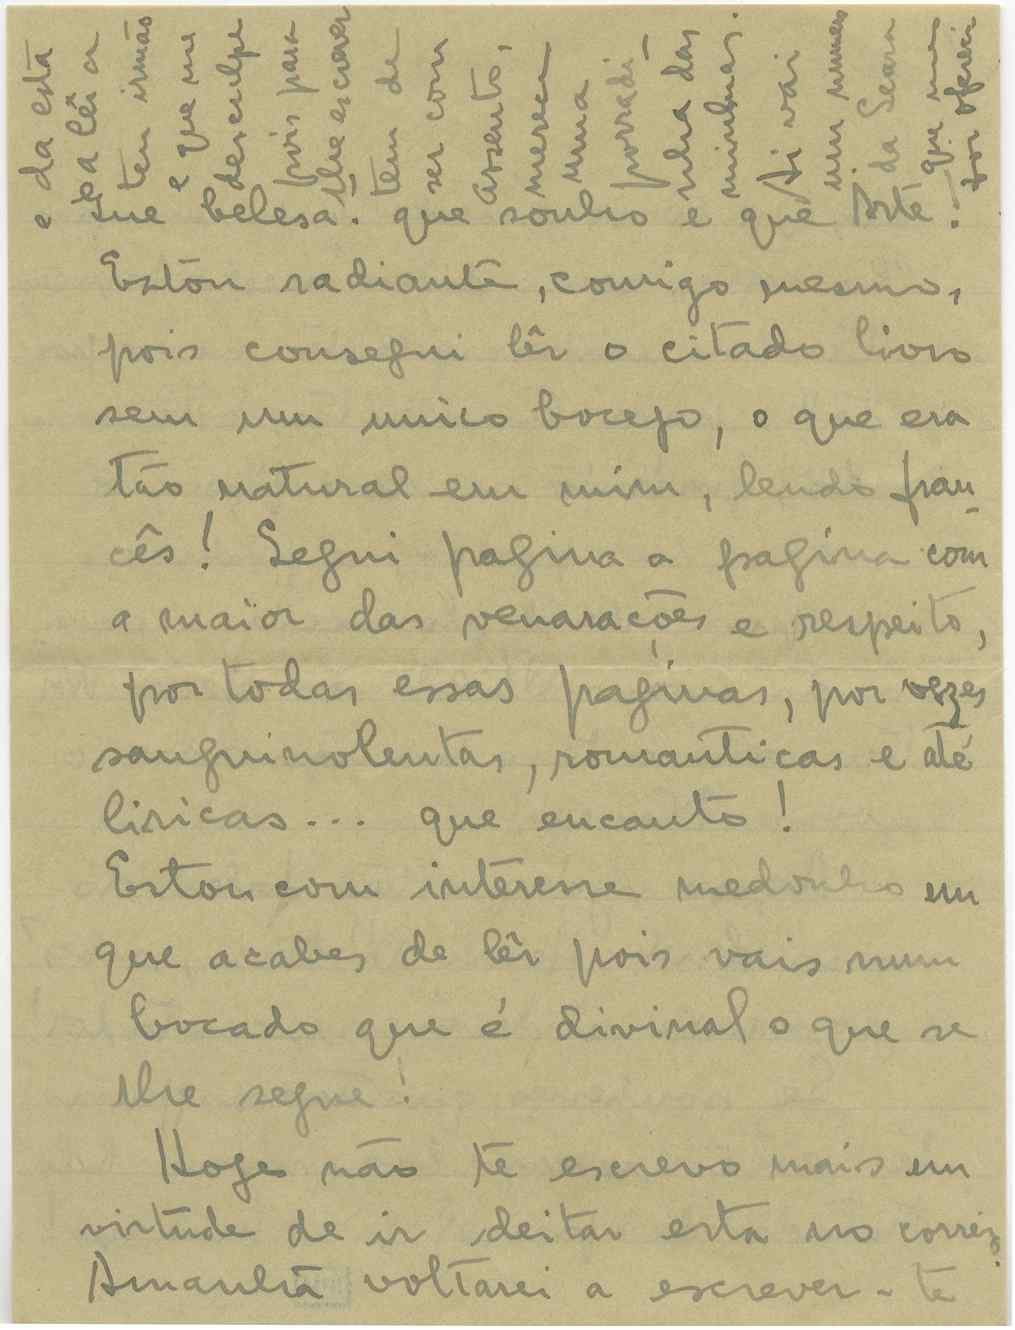 Que belesa! que sonho e que Arte!
Estou radiante, comigo mesmo,
pois consegui lêr o citado livro
sem um unico bocejo, o que era
tão natural em mim, lendo fran
cês! Segui pagina a pagina com
a maior das venarações e respeito,
por todas essas páginas, por vezes
sanguinolentas, romanticas e até
liricas... que encanto!
Estou com interesse medonho em
que acabes de lêr pois vais num
bocado que é divinal o que se
lhe segue!
Hoge não te escrevo mais em
virtude de ir deitar esta no correio.
Amanhã voltarei a escrever-te
e da esta
lêr a
teu irmão
e que me
desculpe
pois para
lhe escrever
tem de
ser com
assento,
merece
uma
porradi-
nha das
minhas.
Ai vai
um numero
da Seara
que me
foi